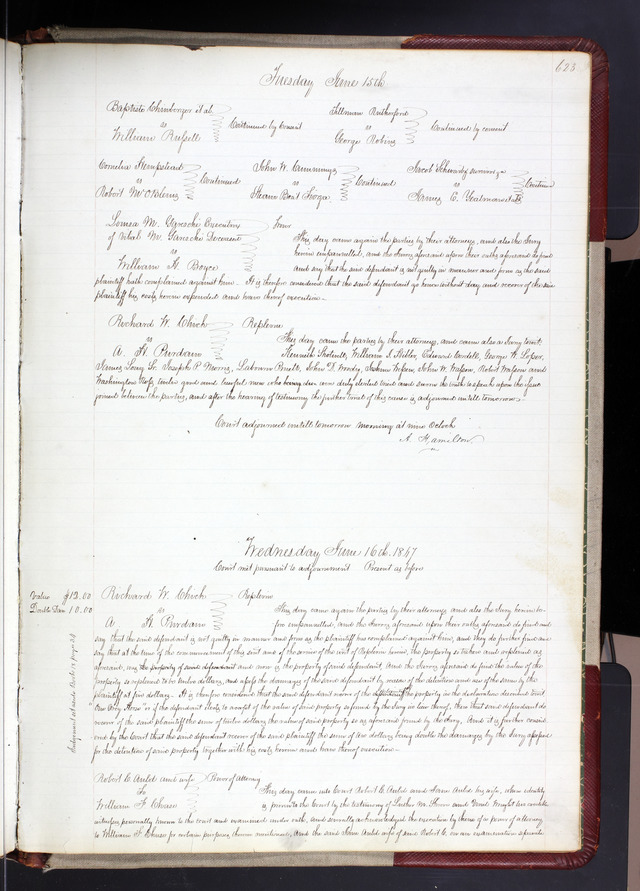 623
Tuesday June 15th
Baptiste Chenberger et al
vs
William Russell
Continued by Consent
Tillman Rutherford
vs
George Robins
Continued by consent
Cornelia Hempstead
vs
Robert McOBlenis
Continued
John W. Cummings
vs
Steam Boat
Continued
Jacob
vs
James E. Yeatman et als
Continued
Louisa M. Executrix
of M. Deceased
vs
William H. Boyce
This day came again the parties by their attorneys, and also the Jury
herein empannelled, and the Jurors aforesaid upon their oaths aforesaid do find
and say that the said defendant is not guilty in manner and form as the said
plaintiff hath complained against him. It is therefore considered that the said defendant go hence without day and recover of the said
plaintiff his costs herein expended and have thereof execution.
Richard W. Chick
vs
A. H. Burdain
Replevin
This day came the parties by their attorneys, and came also a Jury towit;
William Edward George W.
James Long Sr. Joseph P. Morris, John D. John W. Robert and
Washington twelve good and lawful men who being duly elected tried and sworn the truth to speak upon the issue
joined between the parties, and after the hearing of testimony the further trial of this cause is adjourned untill tomorrow.
Court adjourned untill tomorrow morning at nine Oclock
A. Hamilton
Wednesday June 16th 1847
Court met pursuant to adjournment Present as before
Value $12.00
Double Dam 10.00
Richard W. Chick
vs
A. H. Burdain
Replevin
This day came again the parties by their attorneys and also the Jury herein be-
fore empannelled, and the Jurors aforesaid upon their oaths aforesaid do find and
say that the said defendant is not guilty in manner and form as the plaintiff has complained against him, and they do further find and
say that at the time of the commencement of this suit and of the service of the writ of Replevin herein, the property so taken and replevied as
aforesaid, was the property of said defendant and now is the property of said defendant. And the Jurors aforesaid do find the value of the
property so replevied to be twelve dollars, and assess the damages of the said defendant by reason of the detention and use of the same by the
plaintiff at five dollars. It is therefore considered that the said defendant recover of the plaintiff the property in the declaration described towit
"One Grey Horse" or if the defendant elects to accept of the value of said property so found by the Jury in lieu thereof, then that said defendant do
recover of the said plaintiff the sum of twelve dollars the value of said property so as aforesaid found by the Jury. And it is further consid
ered by the Court that the said defendant recover of the said plaintiff the sum of ten dollars being double the damages by the Jury assessed
for the detention of said property together with his costs herein and have thereof execution
Judgment page
Robert C. Auld and wife
To
William F. Chase
Power of attorney
This day came into Court Robert C. Auld and Auld his wife, whose identity
is proven to the Court by the testimony of and Wright two credible
witnesses personally known to the court and examined under oath, and severally acknowledged the execution by them of a power of attorney
to William F. Chase for certain purposes therein mentioned, and the said Auld wife of said Robert C. on an examination separate